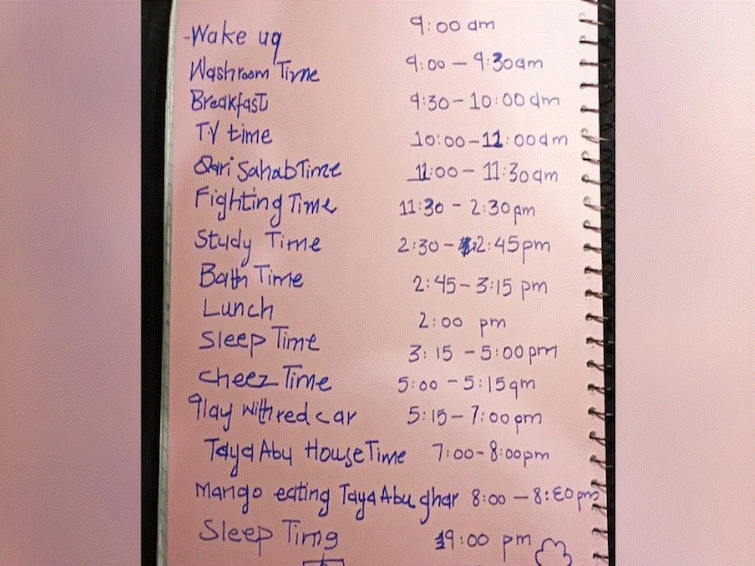 -Wake up 9:00 am
Washroom Time 9:00 - 9:30am
Breakfast 9:30-10:00am
TV time 10:00-11:00am
Qari Sahab Time 11:00 - 11:30am
Fighting Time 11:30 - 2:30pm
Study Time 2:30 - 2:45pm
Bath Time 2:45-3:15 pm
Lunch 2:00 pm
Sleep Time 3:15 -5:00pm
Cheez Time 5:00 - 5:15am
Play with red car 5:15-7:00pm
Taya Abu House Time 7:00-8:00pm
Mango eating Taya Abu ghar 8:00 - 8:30pm
Sleep Time 9:00 pm